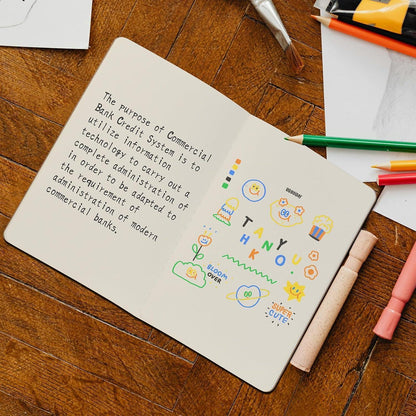 The purpose of Commercial
Bank Credit System is to
utilize information
technology to carry out a
complete administration of
in order to be adapted to
the requirement of
administration of modern
commercial banks.
DESIGN
T A N Y
H K O U
BLOOM
OVER
SUPER
CUTE